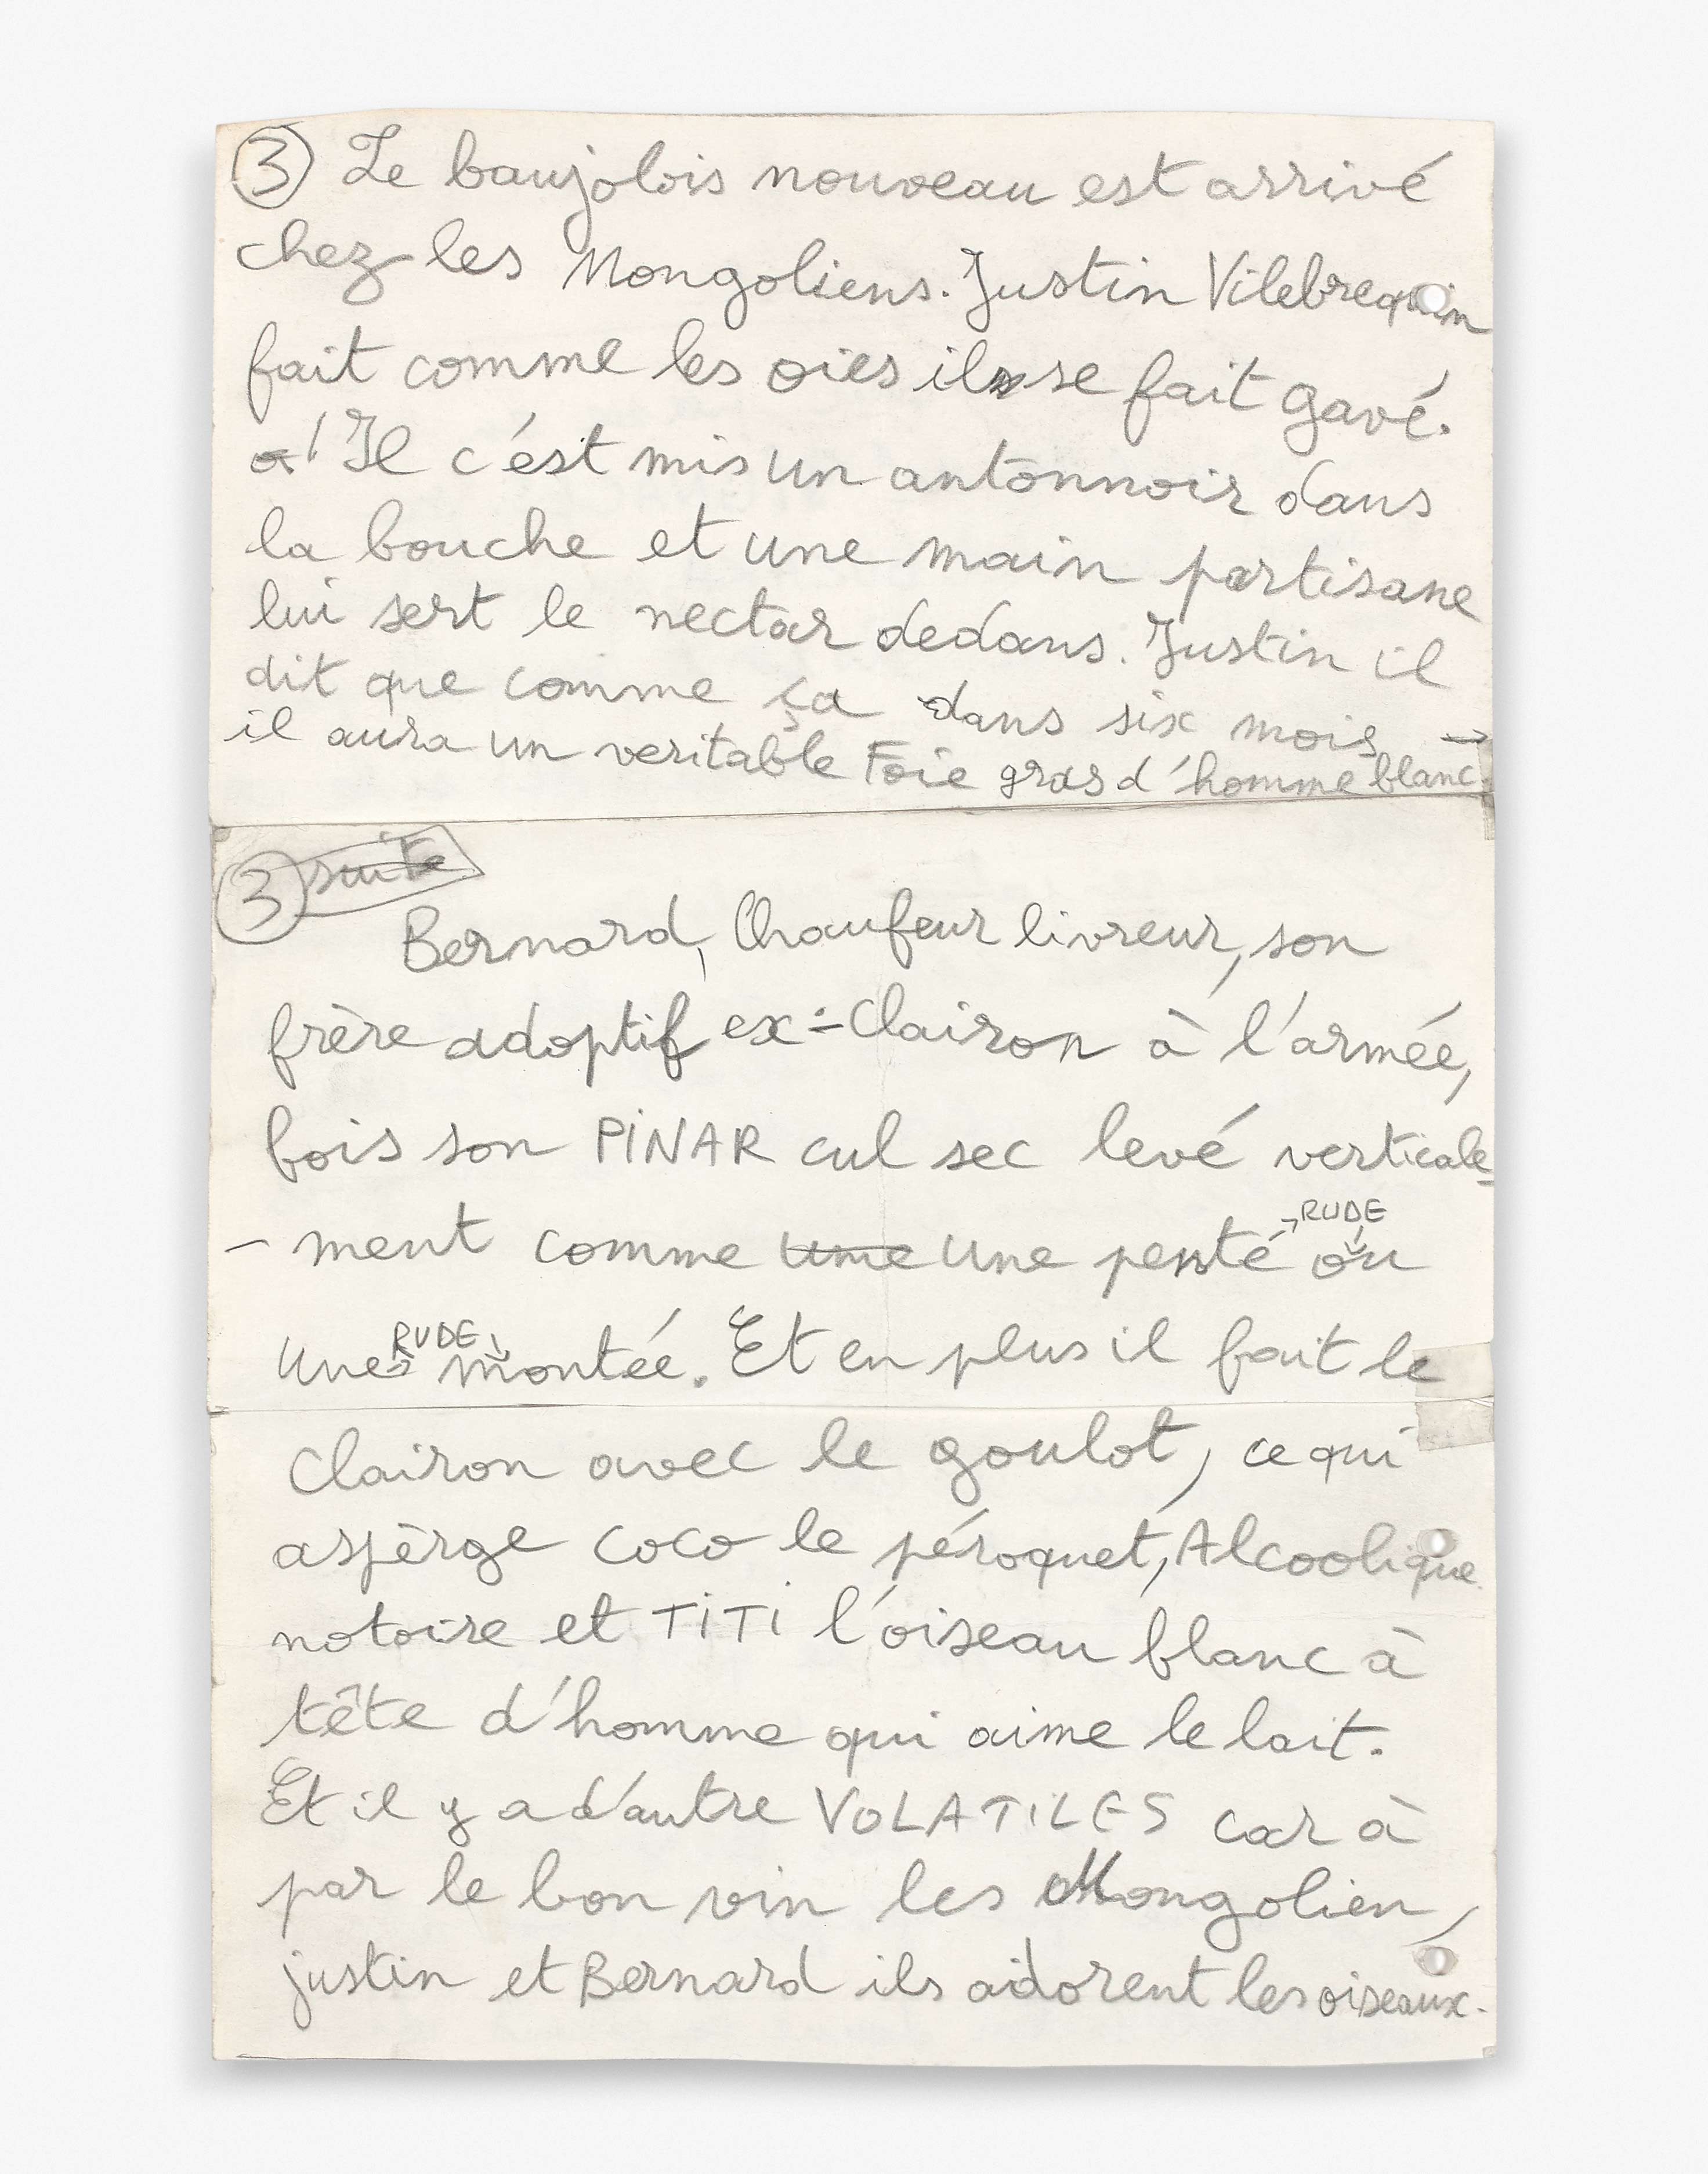 ③ Le baujolois nouveau est arrivé
chez les Mongoliens. Justin Vilebrequin
fait comme les oies il se fait gavé.
a! Il c'ést mis un antonnoir dans
la bouche et une main partisane
lui sert le nectar dedans. Justin il
dit que comme ça dans six mois →
il aura un veritable Foie gras d'homme blanc.
③ suite
Bernard, Chaufeur livreur, son
frère adoptif ex-Clairon à l'armée,
bois son PiNAR cul sec levé verticale-
- ment comme une une penté RUDE ou
Une RUDE montée. Et en plus il fait le
Clairon avec le goulot, ce qui
aspèrge coco le péroquet, Alcoolique
notoire et TiTi l'oiseau blanc à
tête d'homme qui aime le lait.
Et il y a d'autre VOLATiLES car à
par le bon vin les Mongolien,
justin et Bernard ils adorent les oiseaux.